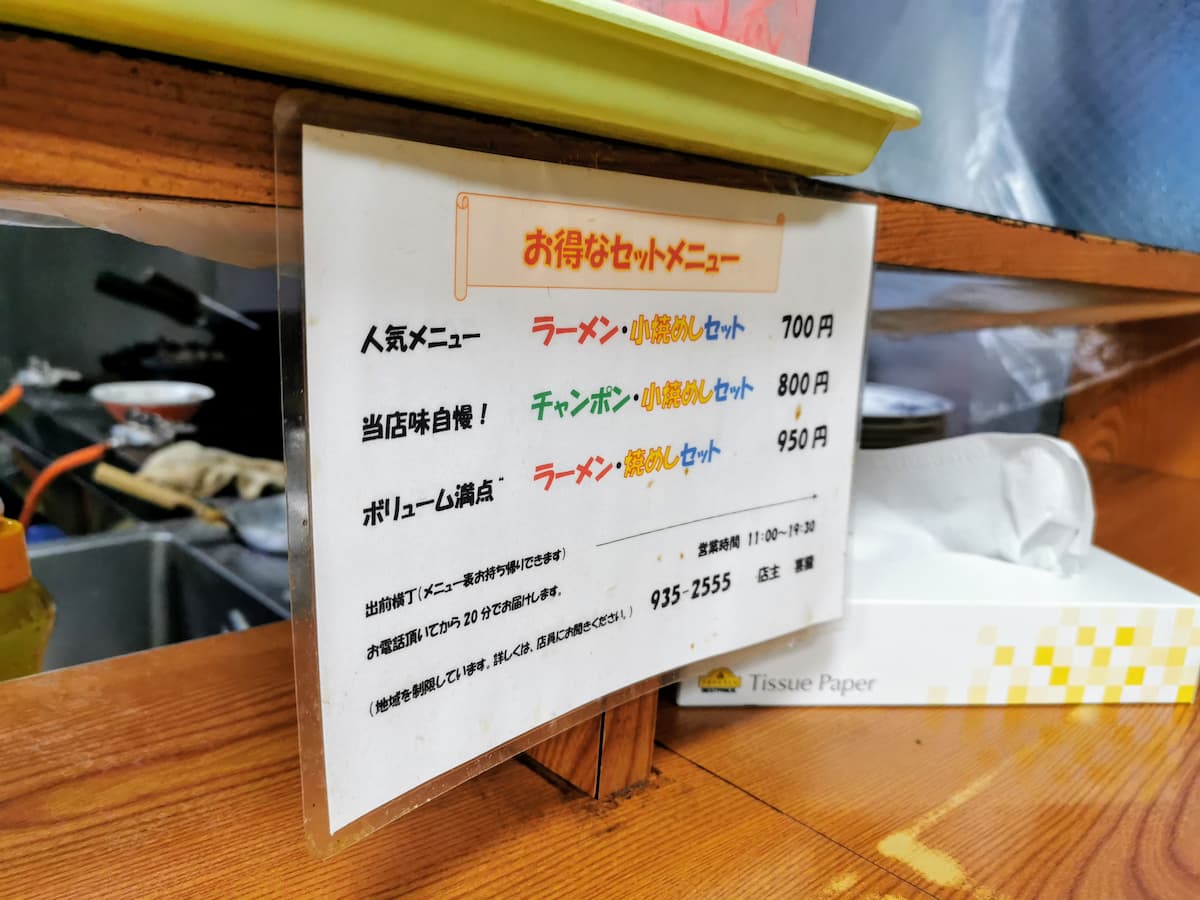 お得なセットメニュー
人気メニュー ラーメン・小焼めしセット 700円
当店味自慢! チャンポン・小焼めしセット 800円
ボリューム満点¨ ラーメン・焼めしセット 950円
営業時間 11:00〜19:30
出前横丁(メニュー表お持ち帰りできます)
935-2555 店主
お電話頂いてから20分でお届けします。
(地域を制限しています。詳しくは、店員にお聞きください。)
TOPVALU
BESTPRICE
Tissue Paper